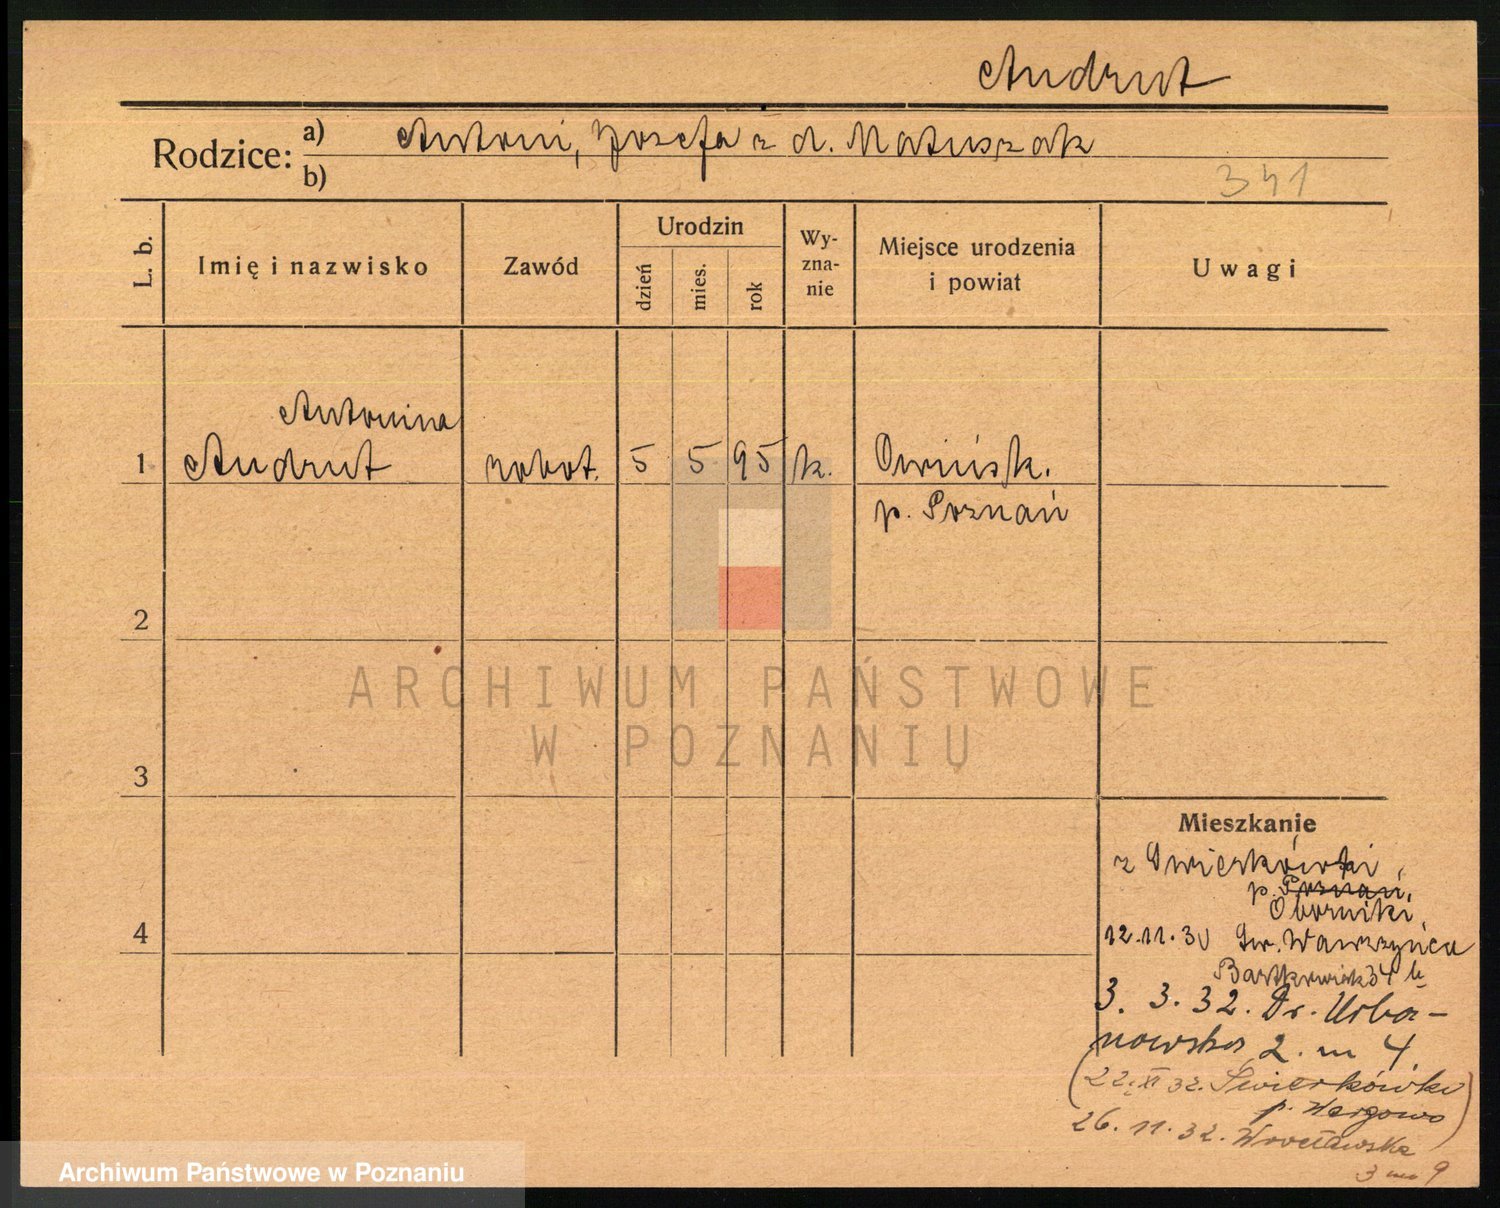 Andrut
Rodzice: a) Antoni, Józefa z d. Matuszak
b)
341
L. b.
Imię i nazwisko
Zawód
Urodzin
dzień
mies.
rok
Wy-
zna-
nie
Miejsce urodzenia
i powiat
Uwagi
Antonina
1 Andrut robot. 5 5 95 k. Owińsk.
p. Poznań
2
ARCHIWUM PAŃSTWOWE
W POZNANIU
3
Mieszkanie
z Świerkówki
p. Poznań,
Oborniki,
4
12.11.30 Św. Wawrzyńca
34
3. 3. 32. Dr. Urba-
nowska 2. m 4.
(22. XI 32. Świerkówka
p. Wargowo)
26. 11. 32. Wrocławska
3 m 9
Archiwum Państwowe w Poznaniu